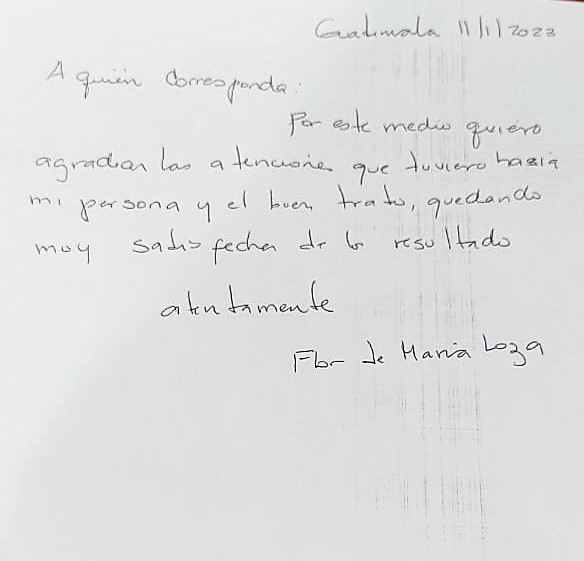 Guatemala 11/1/2023
A quién Corresponda:
Por este medio quiero
agradecer las atenciones que tuviero hasia
mi persona y el buen trato, quedando
muy satisfecha de lo resultado
atentamente
Flor de María Loza